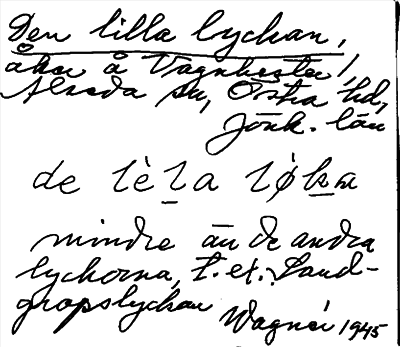 Den lilla lyckan,
åker å Vagnhester,
Alseda sn, Östra hd,
Jönk. län
de lèḻa lǿḵa
mindre än de andra
lyckorna, t. ex. Sand-
gropslyckan
Wagnér 1945